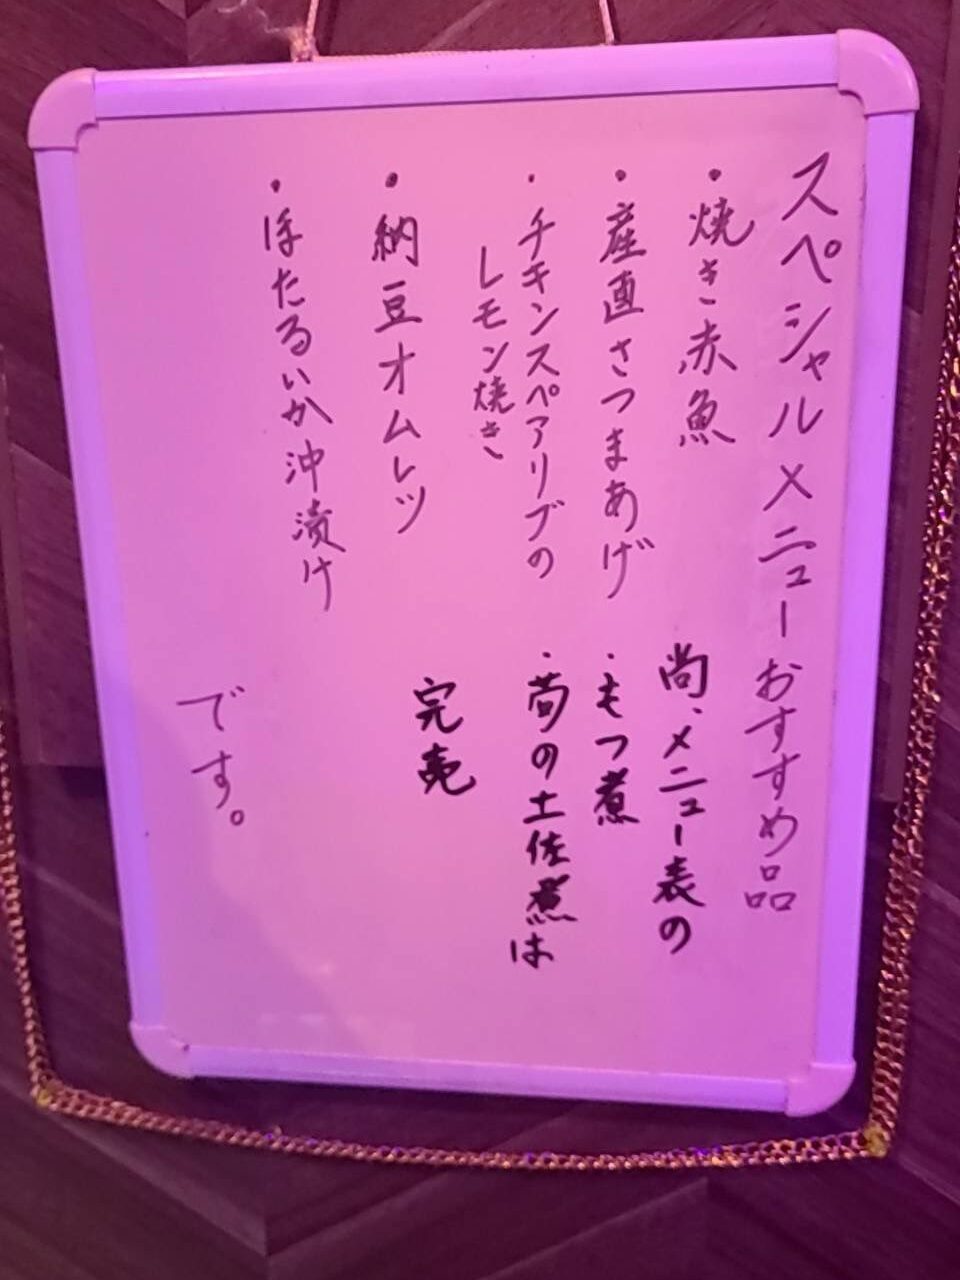 スペシャルメニューおすすめ品
・焼き赤魚
・産直さつまあげ
・チキンスペアリブの
レモン焼き
・納豆オムレツ
・ほたるいか沖漬け
尚、メニュー表の
・もつ煮
・筍の土佐煮は
完売
です。